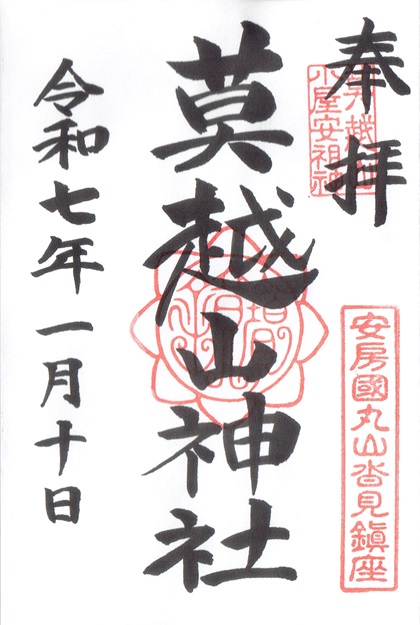 奉拝
小屋安祖神
安房國丸山沓見鎮座
莫越山神社
令和七年一月十日